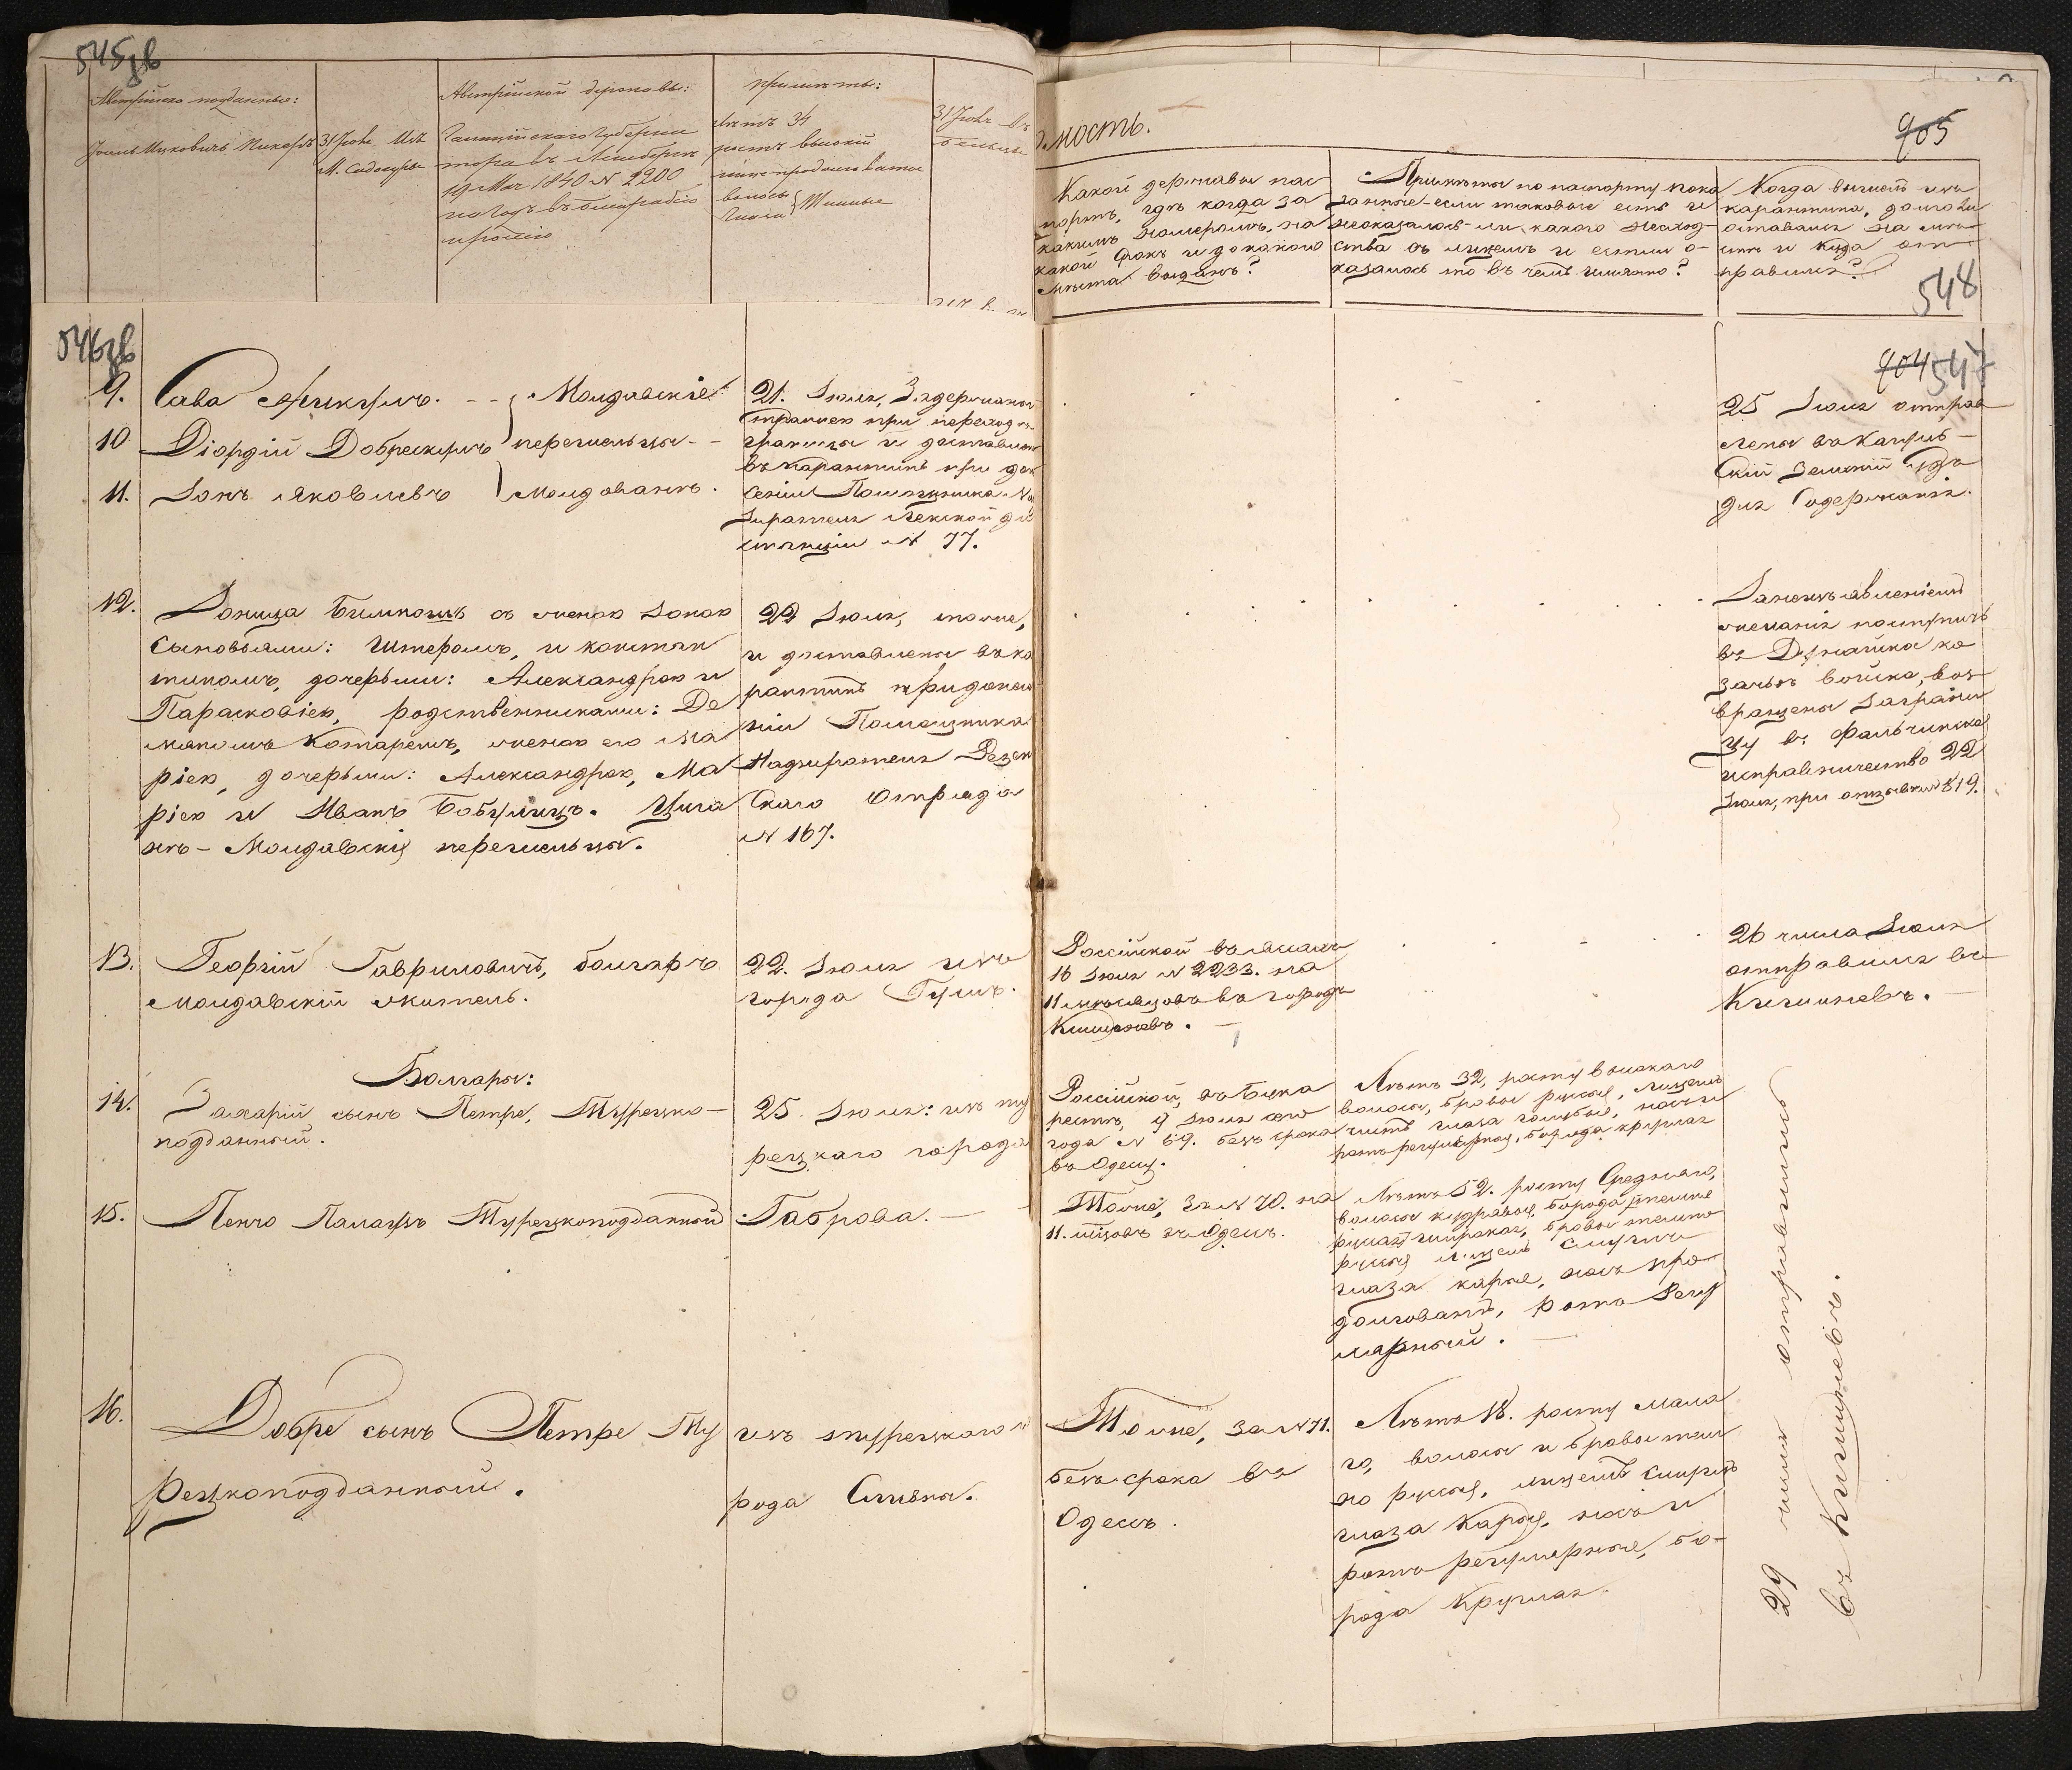 545зв
Австрійско подданные:
31 Іюля Изъ
Австрійской державы:
Галиційскаго Губерна
тора въ Лембергѣ
19 Мая 1840 № 2200
на годъ въ Бессарабію
и Россію
примѣты:
лѣтъ 34
ростъ высокій
лице продолговатое
волосы
глаза } Темные
31 Іюля въ
Бельцы
мость.
905
Какой державы пас
портъ, гдѣ когда за
какимъ номеромъ, на
какой срокъ и до какого
мѣста выданъ?
Примѣты по паспорту пока
занные если таковые есть и
неоказалось ли какого несход-
ства въ лицемъ и естли о-
казалось то въ чемъ имянно?
Когда вышелъ изъ
карантина, долго ли
оставался на мѣ-
стѣ и куда от
правился?
548
546зв
904 547
9. Сава -- Молдавскіе
10 Діордій Добрескулъ перешельцы -
11. Іонъ Яковлевъ Молдованъ.
21. Іюля, Задержаны
стражею при переходѣ
границы и доставлены
въ карантинъ при до
сеніи Помощника На
зирателя Лекской ди
станціи № 77.
25 Іюля отправ
лены въ Кагуль-
скій Земскій Судъ
для Содержанія.
12. Іоница съ женою Іоною
сыновьями: Штефаномъ, и констан
тиномъ, дочерьми: Александрою и
Парасковіею, родственниками: Де
маномъ Котаремъ, женою его Ма
ріею, дочерьми: Александрою, Ма
ріею и Иванъ Цига
нъ - Молдавскія перешельцы.
22 Іюля, тоже,
и доставлены въ ка
рантинъ при донесе
ніи Помощника
Надзирателя
Скаго Отряда
№ 167.
За неизъявленіемъ
желанія поступить
въ Дунайское ко
зачье войско, воз-
вращены Заграни
цу въ Фальчинское
исправничество 22
Іюля, при отзывѣ № 819.
13. Георгій Гавриловичъ, болгаръ
Молдавскій житель.
22. Іюля изъ
города Гушъ.
Россійской въ Яссахъ
16 Іюля № 2233. на
11 мѣсяцовъ въ городъ
Кишиневъ. -
26 числа Іюля
отправился въ
Кишиневъ. -
Болгары:
14. Захарій сынъ Петре, Турецко-
подданный.
25 Іюля: изъ ту
рецкаго города
Россійской, въ Бука
рестѣ, 9 Іюля сего
года № 69. безъ срока
въ Одессу.
Лѣтъ 32, росту высокаго
волосы, бровы русыя, лицемъ
чистъ глаза голубые, носъ и
ротъ регулярной, борода круглая
15. Пенчо Палаузъ Турецкоподданный
Габрова. -
Тоже, за № 70. на
11. мѣсяцовъ въ Одессѣ.
Лѣтъ 52. росту Средняго,
волосы кудравыя, борода темно
русая широкая, бровы темно
русыя лицемъ смуглъ
глаза каріе, носъ про
долговатъ, ротъ Регу
лярный. -
16. Добре сынъ Петре Ту
рецкоподданный.
изъ турецкаго го
рода Сливна.
Тоже, за № 71.
безъ срока въ
Одессъ.
Лѣтъ 18. росту мала
го, волосы и бровы тем
но русыя, лицемъ смуглъ
глаза Карыя, носъ и
ротъ регулярные, бо-
рода круглая.
29 числа отправились
въ Кишиневъ.